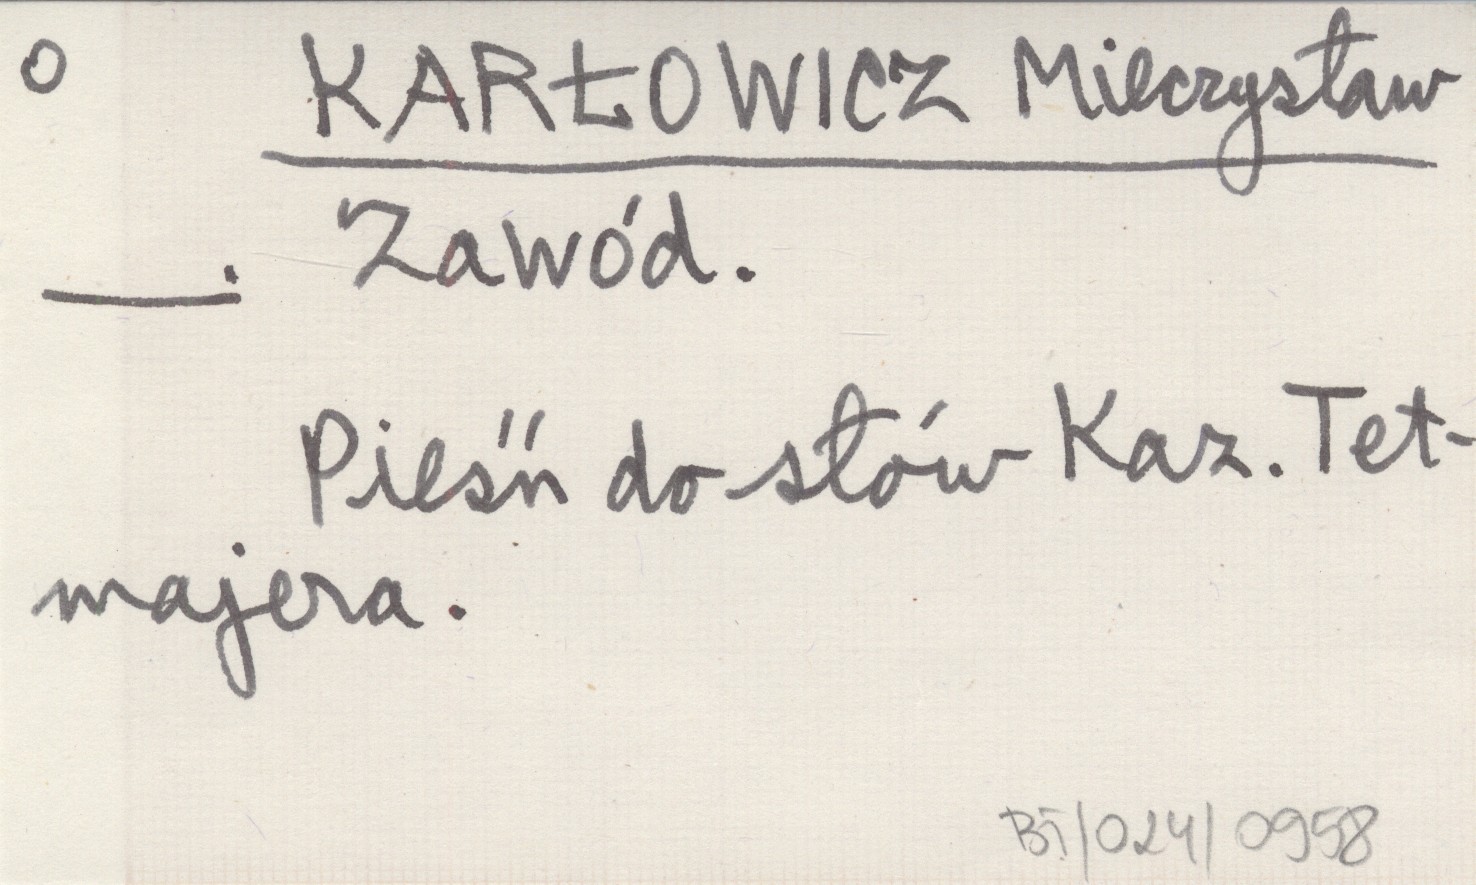 o KARŁOWICZ Mieczysław
___. Zawód.
Pieśń do słów Kaz. Tet-
majera.
BT/024/0958